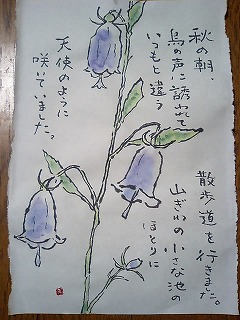 秋の朝、
鳥の声に誘われて
いつもと違う
散歩道を行きました。
山ぎわの小さな池の
ほとりに
天使のように
咲いていました。